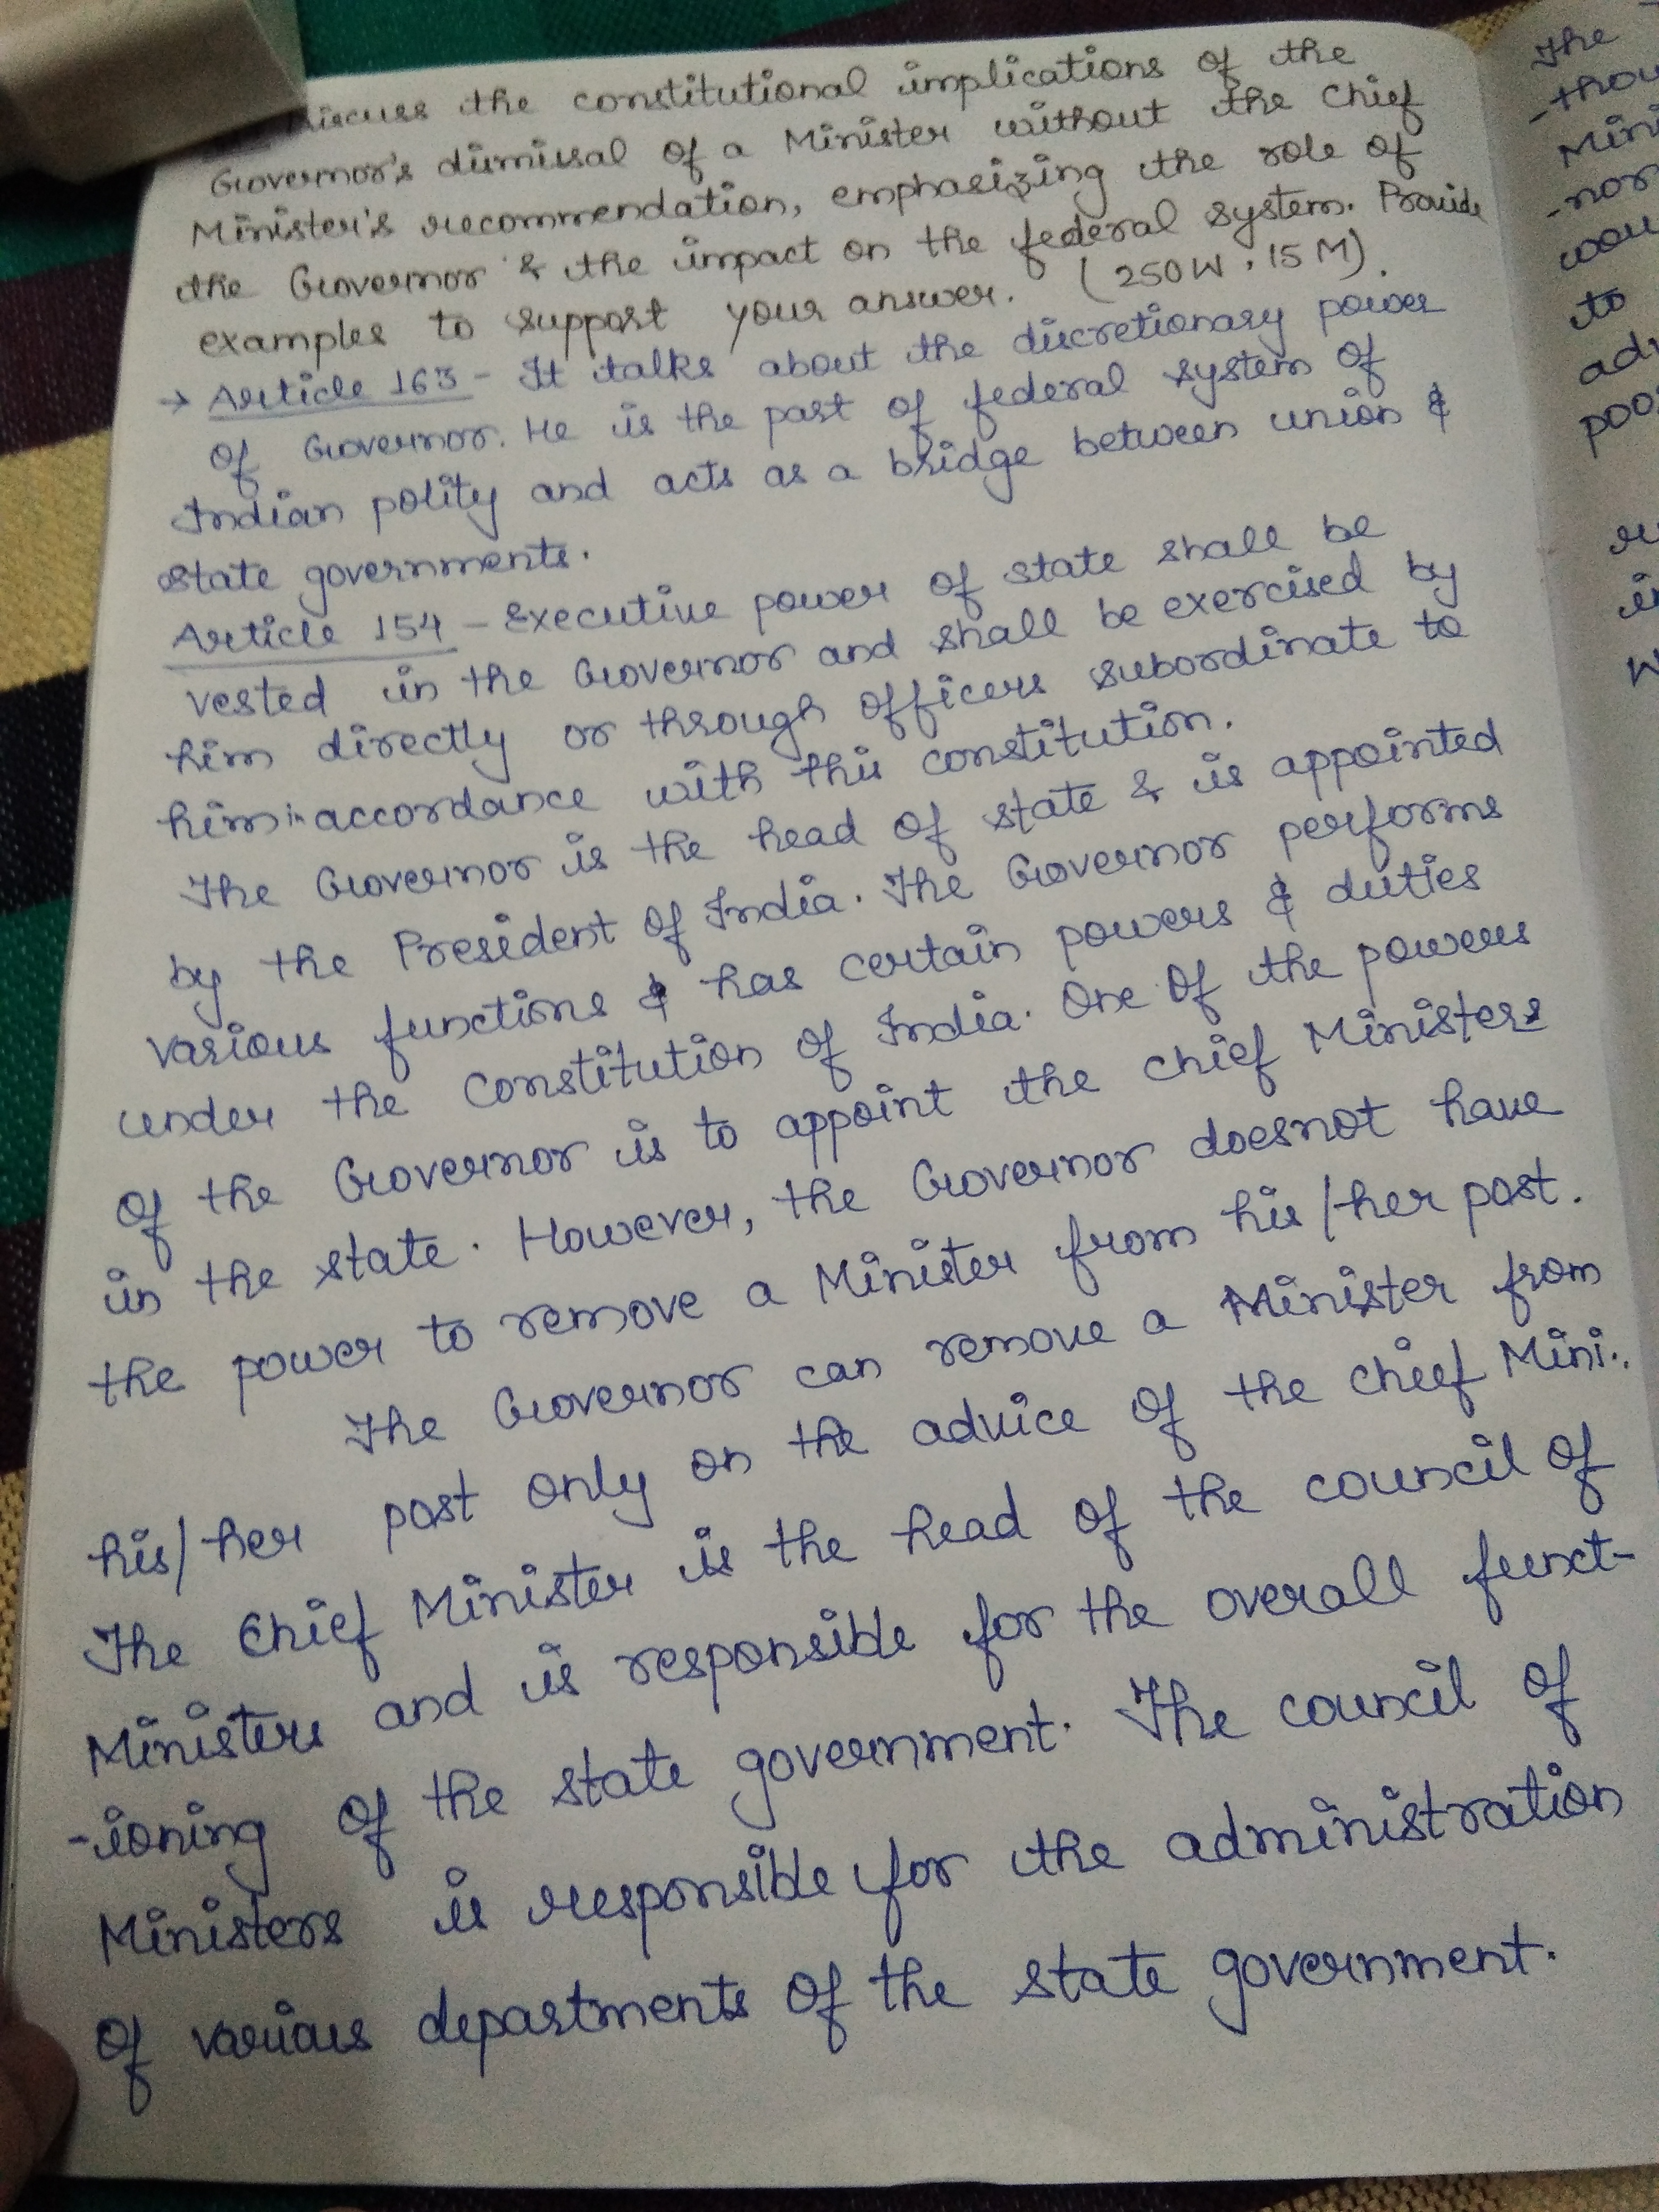 Discuss the constitutional implications of the
Governor's dismissal of a Minister without the Chief
Minister's recommendation, emphasizing the role of
the Governor & the impact on the federal system. Provide
examples to support your answer. (250W, 15M).
→ Article 163 - It talks about the discretionary power
of Governor. He is the part of federal system of
Indian polity and acts as a bridge between union &
state governments.
Article 154 - Executive power of state shall be
vested in the Governor and shall be exercised by
him directly or through officers subordinate to
him in accordance with this constitution.
The Governor is the head of state & is appointed
by the President of India. The Governor performs
various functions & has certain powers & duties
under the Constitution of India. One of the powers
of the Governor is to appoint the Chief Ministers
in the state. However, the Governor doesnot have
the power to remove a Minister from his/her post.
The Governor can remove a Minister from
his/her post only on the advice of the Chief Mini..
The Chief Minister is the head of the council of
Ministers and is responsible for the overall funct-
-ioning of the state government. The council of
Ministers is responsible for the administration
of various departments of the state government.
The
-thou
Mini
-nor
wou
to
adv
poo
W